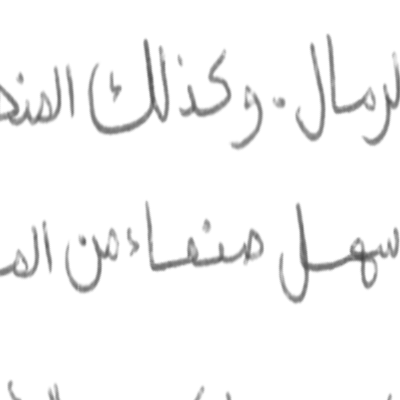 لرمال. وكذلك المنح
سهل صنعاء من الم